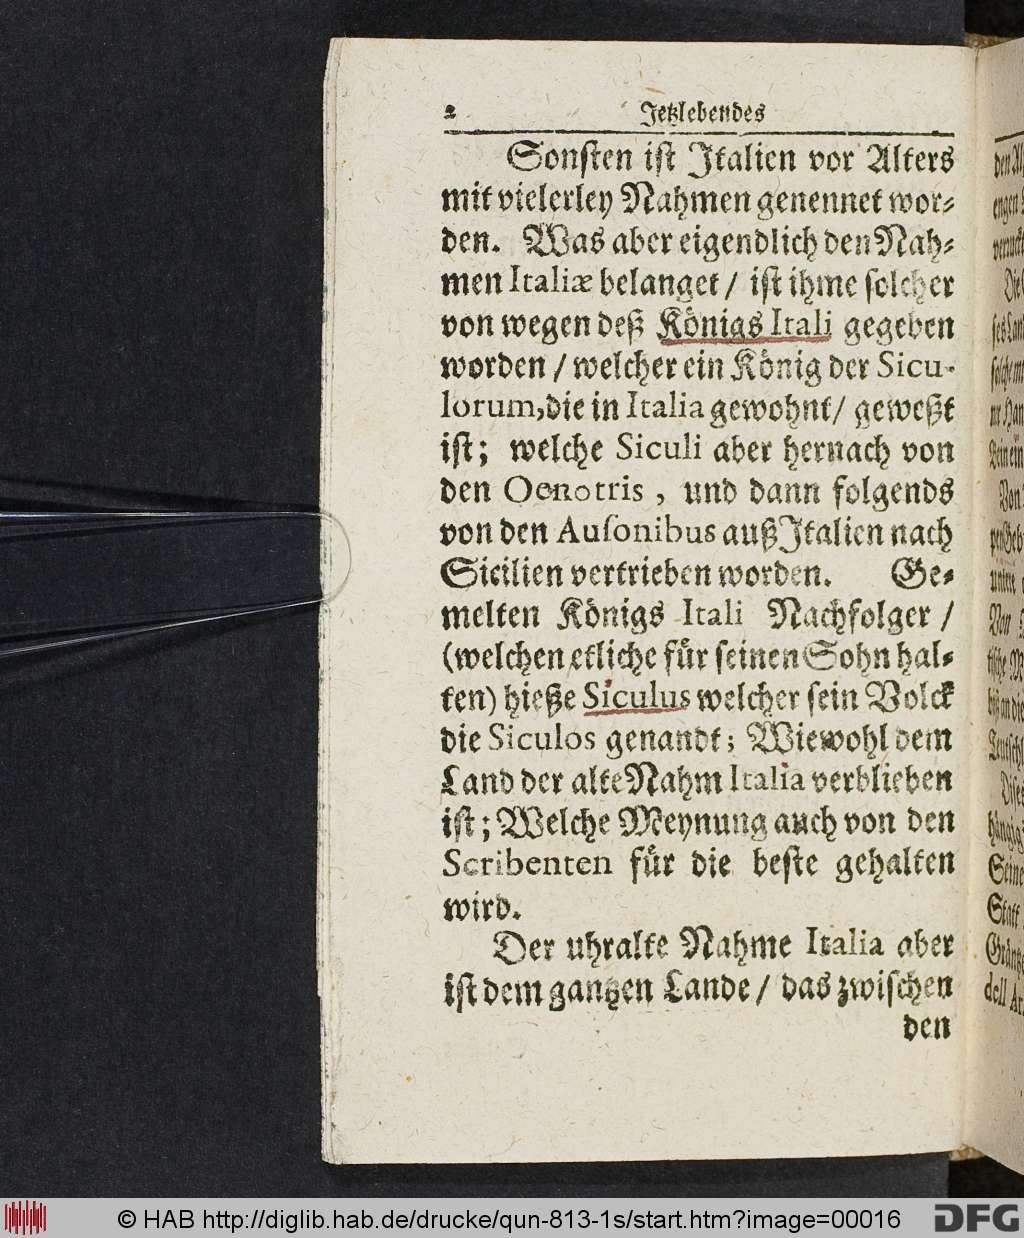 2 Jetzlebendes
Sonsten ist Italien vor Alters
mit vielerley Nahmen genennet wor-
den. Was aber eigendlich den Nah-
men Italiæ belanget / ist ihme solcher
von wegen deß Königs Itali gegeben
worden / welcher ein König der Sicu-
lorum, die in Italia gewohnt / geweßt
ist; welche Siculi aber hernach von
den Oenotris, und dann folgends
von den Ausonibus auß Italien nach
Sicilien vertrieben worden. Ge-
melten Königs Itali Nachfolger /
(welchen etliche für seinen Sohn hal-
ten) hieße Siculus welcher sein Volck
die Siculos genandt; Wiewohl dem
Land der alte Nahm Italia verblieben
ist; Welche Meynung auch von den
Scribenten für die beste gehalten
wird.
Der uhralte Nahme Italia aber
ist dem gantzen Lande / das zwischen
den
© HAB http://diglib.hab.de/drucke/qun-813-1s/start.htm?image=00016
DFG